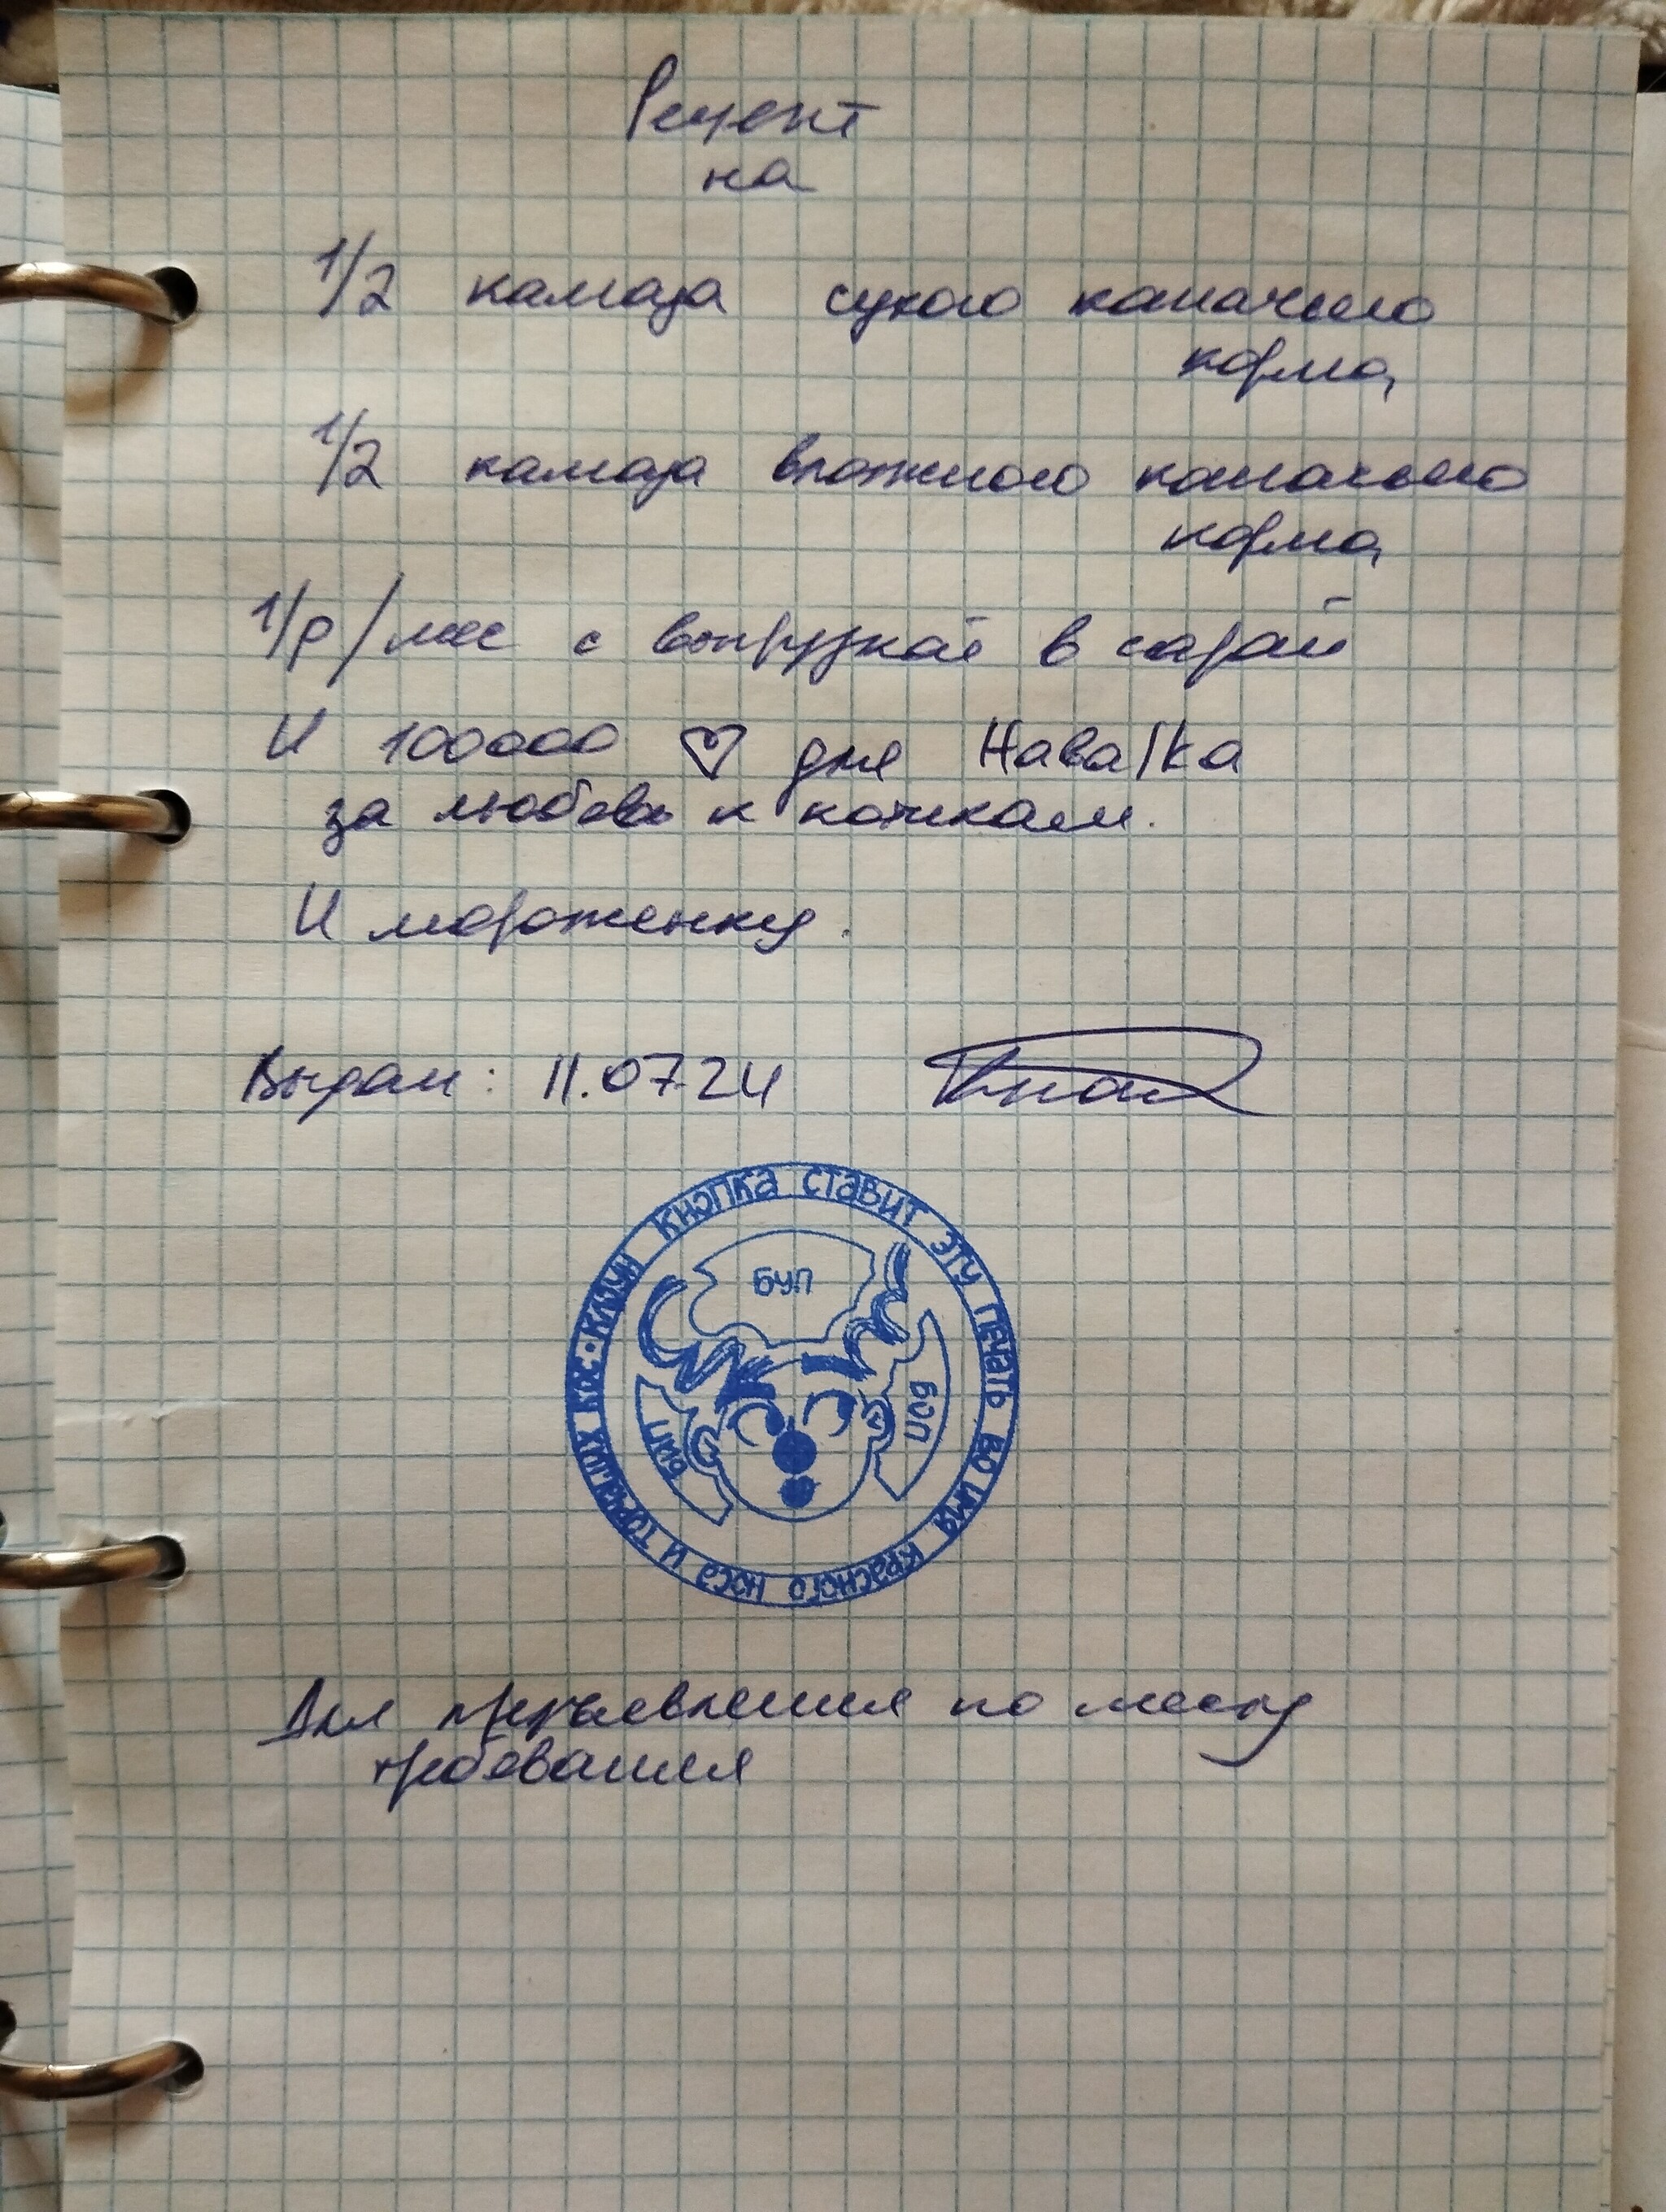 Рецепт
на
1/2 камаза сухого кошачьего
корма,
1/2 камаза влажного кошачьего
корма,
1/р/мес с выгрузкой в сарай
И 100000 ♡ для Нава1ка
за любовь к котикам.
И мороженку.
Выдан: 11.07.24
КЛОУН КНОПКА СТАВИТ ЭТУ ПЕЧАТЬ ВО ИМЯ КРАСНОГО НОСА И ТОРЧАЩИХ КОС
БУП
БОП
БИП
Для предъявления по месту
требования